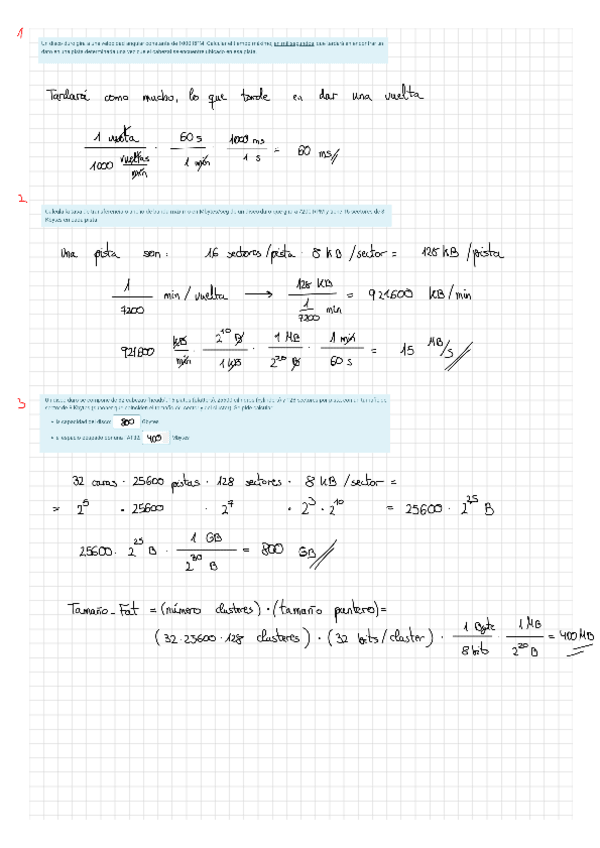 1
Un disco duro gira a una velocidad angular constante de 1000 RPM. Calcular el tiempo máximo, en milisegundos, que tardará en encontrar un
dato en una pista determinada una vez que el cabezal se encuentre ubicado en esa pista.
Tardará como mucho, lo que tarde en dar una vuelta
1 vuelta / 1000 vueltas/min · 60 s / 1 min · 1000 ms / 1 s = 60 ms
2
Calcula la tasa de transferencia o ancho de banda máximo en Mbytes/seg de un disco duro que gira a 7200 RPM y tiene 16 sectores de 8
Kbytes en cada pista
Una pista son: 16 sectores/pista · 8 KB/sector = 128 KB/pista
1 / 7200 min/vuelta → 128 KB / 1/7200 min = 921600 KB/min
921600 KB/min · 2^10 B / 1 KB · 1 MB / 2^20 B · 1 min / 60 s = 15 MB/s
3
Un disco duro se compone de 32 cabezas
la capacidad del disco: 800 Gbytes
el espacio ocupado por una FAT32: 400 Mbytes
32 caras · 25600 pistas · 128 sectores · 8 KB/sector =
= 2^5 · 25600 · 2^7 · 2^3 · 2^10 = 25600 · 2^25 B
25600 · 2^25 B · 1 GB / 2^30 B = 800 GB
Tamaño_Fat = (número clusteres) · (tamaño puntero) =
(32·25600·128 clusteres) · (32 bits/cluster) · 1 Byte / 8 bits · 1 MB / 2^20 B = 400 MB